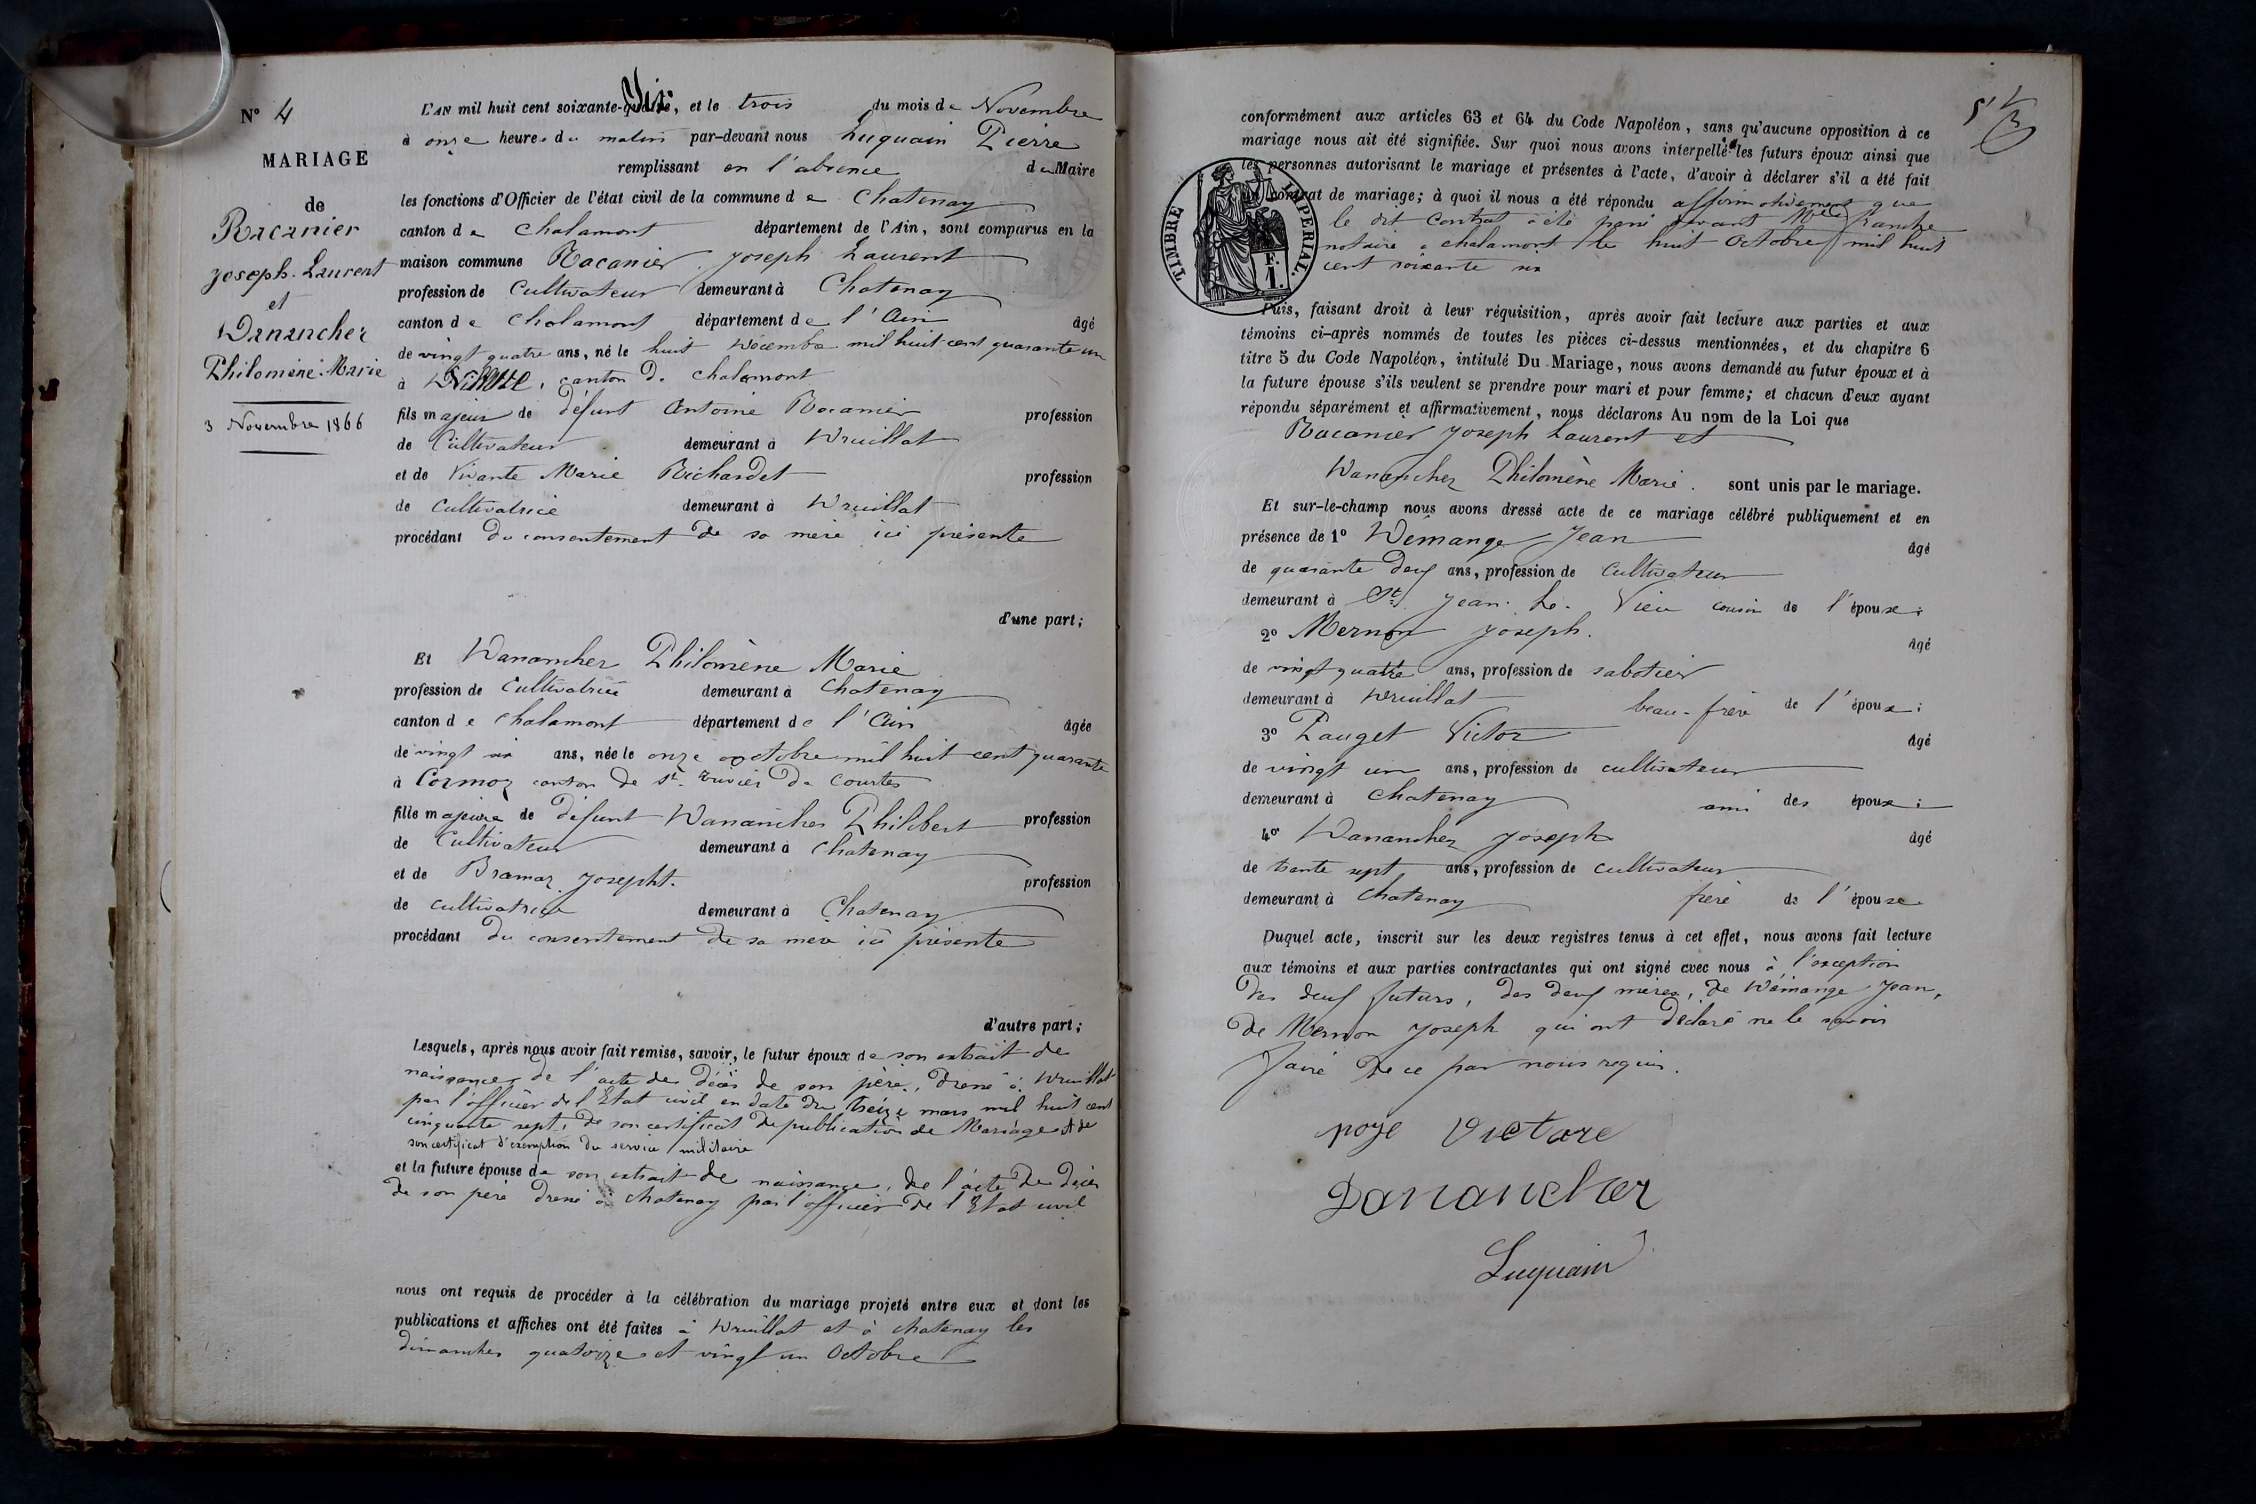 N° 4
MARIAGE
de
Racanier
Joseph-Laurent
et
Danancher
Philomène-Marie
3 Novembre 1866
L'AN mil huit cent soixante-six, et le trois du mois de Novembre
à onze heures du matin par-devant nous Luquain Pierre
remplissant en l'absence du Maire
les fonctions d'Officier de l'état civil de la commune de Chatenay
canton de Chalamont département de l'Ain, sont comparus en la
maison commune Racanier Joseph Laurent
profession de Cultivateur demeurant à Chatenay
canton de Chalamont département de l'Ain âgé
de vingt quatre ans, né le huit Décembre mil huit cent quarante un
à canton de Chalamont
fils majeur de défunt Antoine Racanier profession
de Cultivateur demeurant à Druillat
et de Vivante Marie Richardet profession
de Cultivatrice demeurant à Druillat
procédant du consentement de sa mère ici présente
d'une part;
Et Danancher Philomène Marie
profession de Cultivatrice demeurant à Chatenay
canton de Chalamont département de l'Ain âgée
de vingt six ans, née le onze octobre mil huit cent quarante
à Cormoz canton de St. Trivier de Courtes
fille majeure de défunt Danancher Philibert profession
de Cultivateur demeurant à Chatenay
et de Bramaz Josepht. profession
de cultivatrice demeurant à Chatenay
procédant du consentement de sa mère ici présente
d'autre part;
Lesquels, après nous avoir fait remise, savoir, le futur époux de son extrait de
naissance, de l'acte de décès de son père, dressé à Druillat
par l'officier de l'Etat civil en date du treize mars mil huit cent
cinquante sept, de son certificat de publication de Mariage et de
son certificat d'exemption du service militaire
et la future épouse de son extrait de naissance, de l'acte de décès
de son père dressé à Chatenay par l'officier de l'Etat civil
nous ont requis de procéder à la célébration du mariage projeté entre eux et dont les
publications et affiches ont été faites à Druillat et à Chatenay les
dimanches quatorze et vingt un Octobre
conformément aux articles 63 et 64 du Code Napoléon, sans qu'aucune opposition à ce
mariage nous ait été signifiée. Sur quoi nous avons interpellé les futurs époux ainsi que
les personnes autorisant le mariage et présentes à l'acte, d'avoir à déclarer s'il a été fait
un contrat de mariage; à quoi il nous a été répondu affirmativement que
le dit Contrat a été passé devant Franche
notaire à Chalamont le huit Octobre mil huit
cent soixante six
TIMBRE IMPÉRIAL.
F.
1.
Puis, faisant droit à leur réquisition, après avoir fait lecture aux parties et aux
témoins ci-après nommés de toutes les pièces ci-dessus mentionnées, et du chapitre 6
titre 5 du Code Napoléon, intitulé Du Mariage, nous avons demandé au futur époux et à
la future épouse s'ils veulent se prendre pour mari et pour femme; et chacun d'eux ayant
répondu séparément et affirmativement, nous déclarons Au nom de la Loi que
Racanier Joseph Laurent et
Danancher Philomène Marie. sont unis par le mariage.
Et sur-le-champ nous avons dressé acte de ce mariage célébré publiquement et en
présence de 1° Démange Jean âgé
de quarante deux ans, profession de Cultivateur
demeurant à St. Jean-Le-Vieu cousin de l'épouse;
2° Mernon Joseph. âgé
de vingt quatre ans, profession de sabotier
demeurant à Druillat beau-frère de l'époux;
3° Pauget Victor âgé
de vingt un ans, profession de cultivateur
demeurant à Chatenay ami des époux;
4° Danancher Joseph âgé
de trente sept ans, profession de cultivateur
demeurant à Chatenay frère de l'épouse
Duquel acte, inscrit sur les deux registres tenus à cet effet, nous avons fait lecture
aux témoins et aux parties contractantes qui ont signé avec nous à l'exception
des deux futurs, des deux mères, de Démange Jean,
de Mernon Joseph qui ont déclaré ne le savoir
faire de ce par nous requis.
poje Victore
Danancher
Luquain